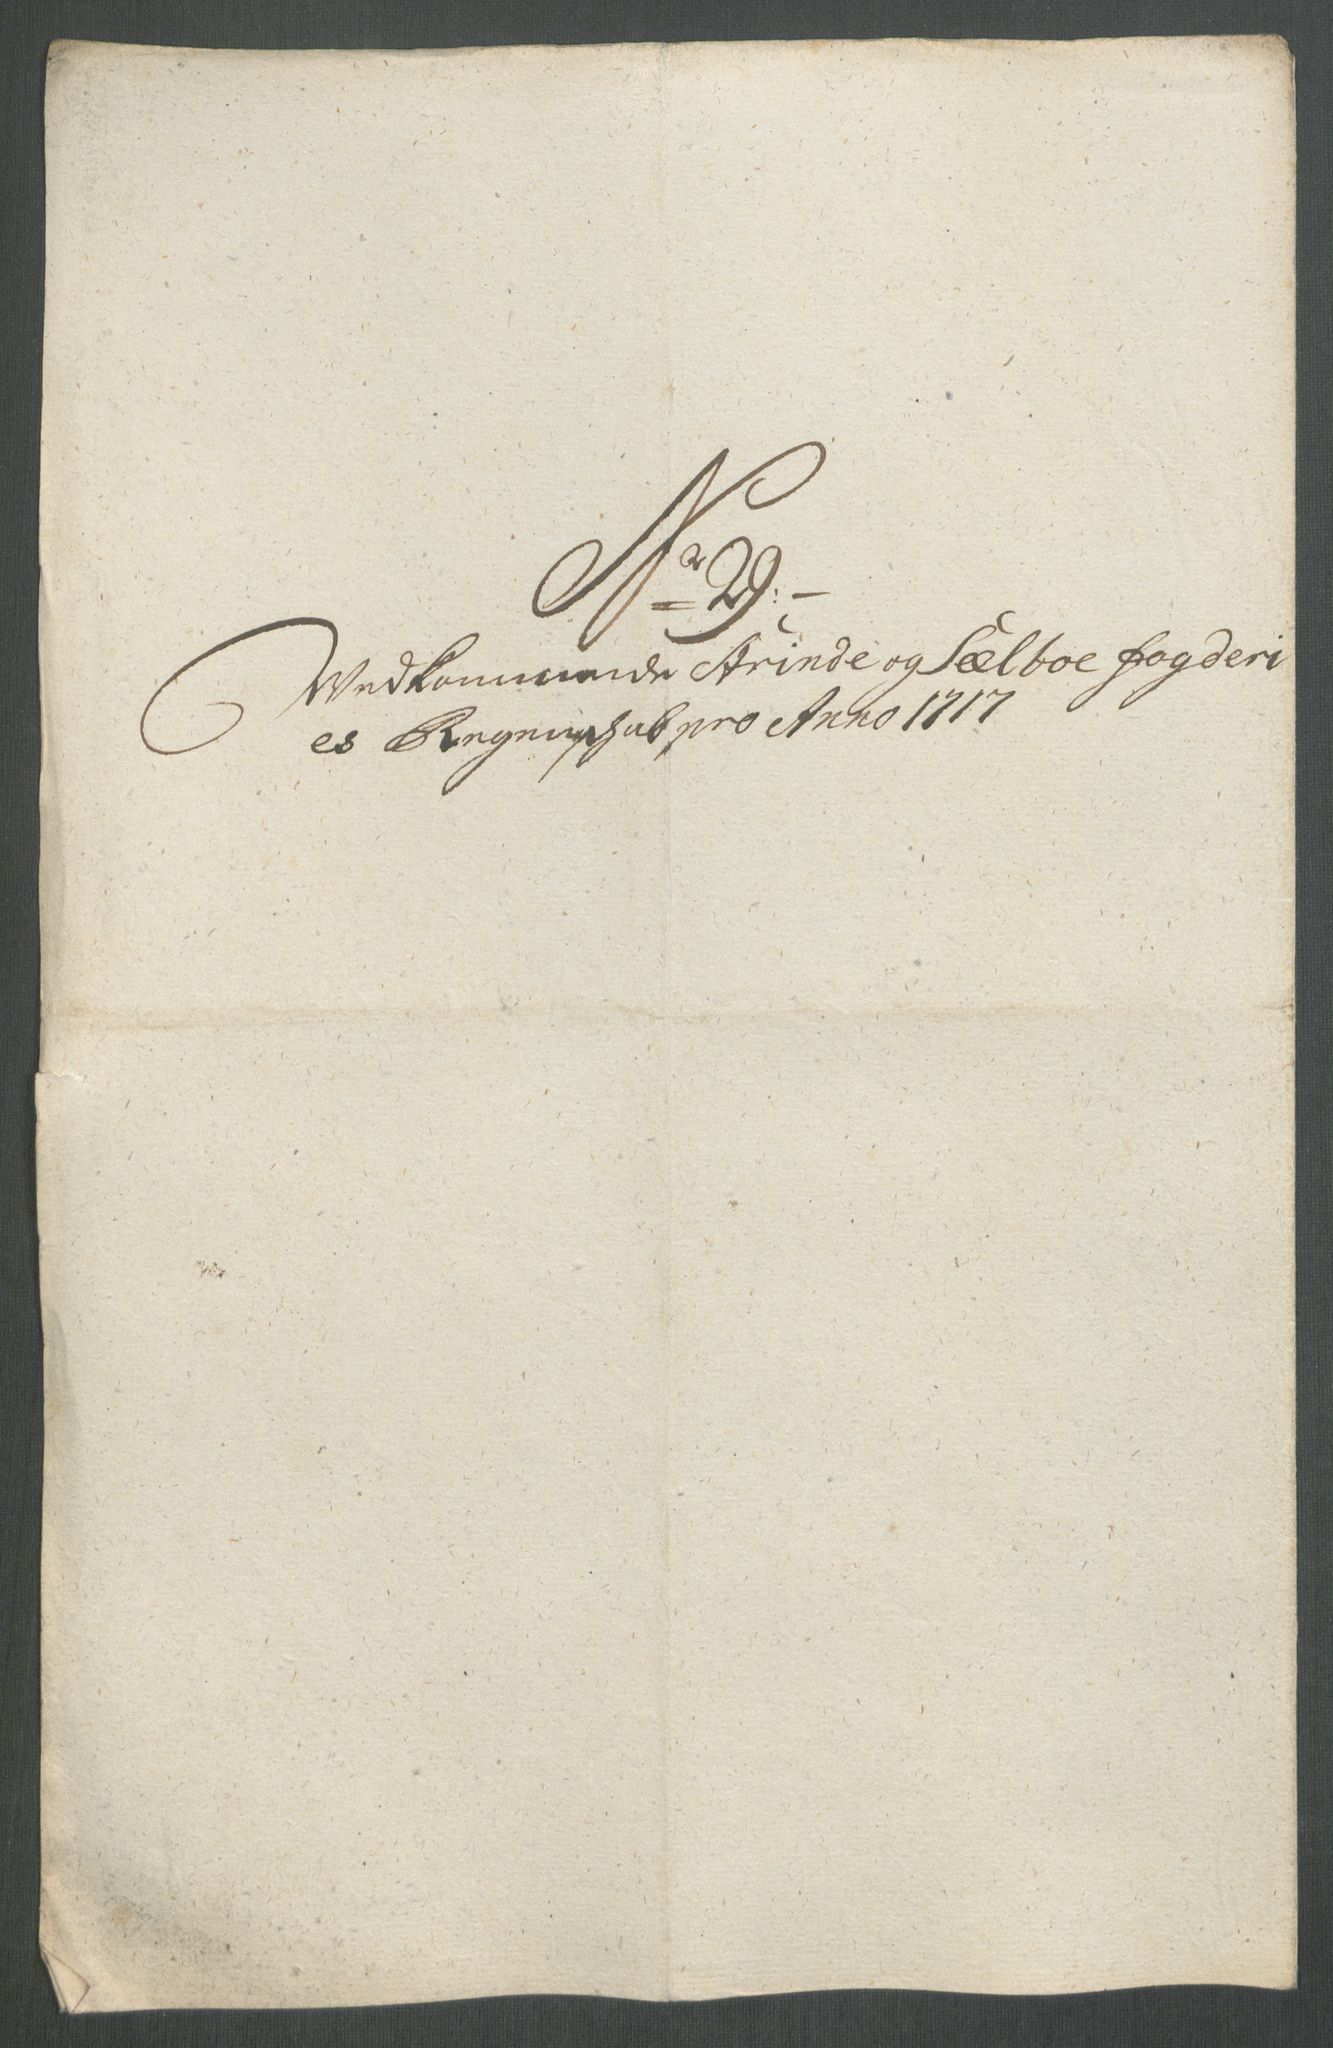 No 29:—
Vedkommende Strinde og Sælboe fogderi
es Regenschab pro Anno 1717